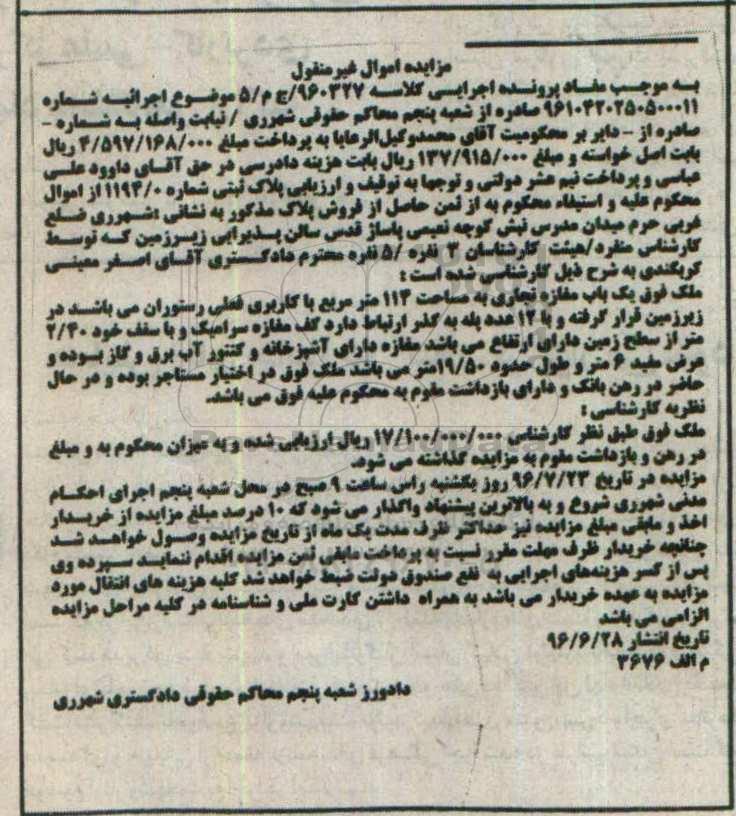 مزایده اموال غیرمنقول
به موجب مفاد پرونده اجرایی کلاسه ۹۶۰۳۲۷/ج م/۵ موضوع اجرائیه شماره
۹۶۱۰۴۲۰۲۵۰۵۰۰۰۱۱ صادره از شعبه پنجم محاکم حقوقی شهرری / نیابت واصله به شماره –
صادره از – دایر بر محکومیت آقای محمدوکیل‌الرعایا به پرداخت مبلغ ۴/۵۹۷/۱۶۸/۰۰۰ ریال
بابت اصل خواسته و مبلغ ۱۳۷/۹۱۵/۰۰۰ ریال بابت هزینه دادرسی در حق آقای داوود علی
عباسی و پرداخت نیم عشر دولتی و توجها به توقیف و ارزیابی پلاک ثبتی شماره ۱۱۹۴/۰ از اموال
محکوم علیه و استیفاء محکوم به از ثمن حاصل از فروش پلاک مذکور به نشانی :شهرری ضلع
غربی حرم میدان مدرس نبش کوچه نعیمی پاساژ قدس سالن پذیرایی زیرزمین که توسط
کارشناس منفرد/هیئت کارشناسان ۳ نفره /۵ نفره محترم دادگستری آقای اصغر معینی
کربکندی به شرح ذیل کارشناسی شده است :
ملک فوق یک باب مغازه تجاری به مساحت ۱۱۳ متر مربع با کاربری فعلی رستوران می باشد در
زیرزمین قرار گرفته و با ۱۲ عدد پله به گذر ارتباط دارد کف مغازه سرامیک و با سقف خود ۲/۴۰
متر از سطح زمین دارای ارتفاع می باشد مغازه دارای آشپزخانه و کنتور آب برق و گاز بوده و
عرض مفید ۶ متر و طول حدود ۱۹/۵۰متر می باشد ملک فوق در اختیار مستاجر بوده و در حال
حاضر در رهن بانک و دارای بازداشت مقوم به محکوم علیه فوق می باشد.
نظریه کارشناسی :
ملک فوق طبق نظر کارشناس ۱۷/۱۰۰/۰۰۰/۰۰۰ ریال ارزیابی شده و به میزان محکوم به و مبلغ
در رهن و بازداشت مقوم به مزایده گذاشته می شود.
مزایده در تاریخ ۹۶/۷/۲۳ روز یکشنبه راس ساعت ۹ صبح در محل شعبه پنجم اجرای احکام
مدنی شهرری شروع و به بالاترین پیشنهاد واگذار می شود که ۱۰ درصد مبلغ مزایده از خریدار
اخذ و مابقی مبلغ مزایده نیز حداکثر ظرف مدت یک ماه از تاریخ مزایده وصول خواهد شد
چنانچه خریدار ظرف مهلت مقرر نسبت به پرداخت مابقی ثمن مزایده اقدام ننماید سپرده وی
پس از کسر هزینه‌های اجرایی به نفع صندوق دولت ضبط خواهد شد کلیه هزینه های انتقال مورد
مزایده به عهده خریدار می باشد به همراه داشتن کارت ملی و شناسنامه در کلیه مراحل مزایده
الزامی می باشد
تاریخ انتشار ۹۶/۶/۲۸
م الف ۳۶۷۶
دادورز شعبه پنجم محاکم حقوقی دادگستری شهرری